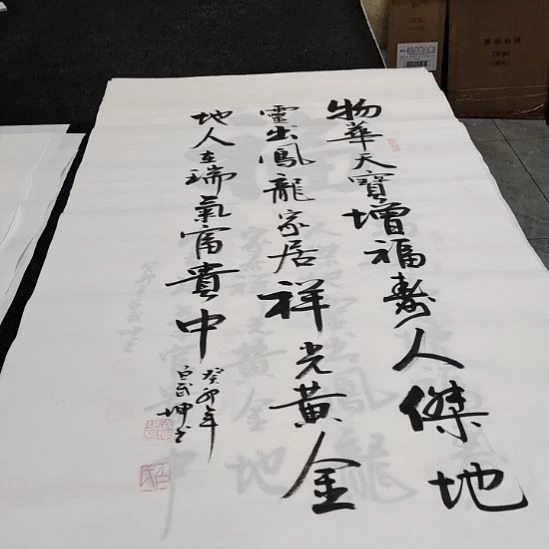 物華天寶增福壽人傑地
靈出鳳龍家居祥光黃金
地人在瑞氣富貴中
癸卯年
坤書